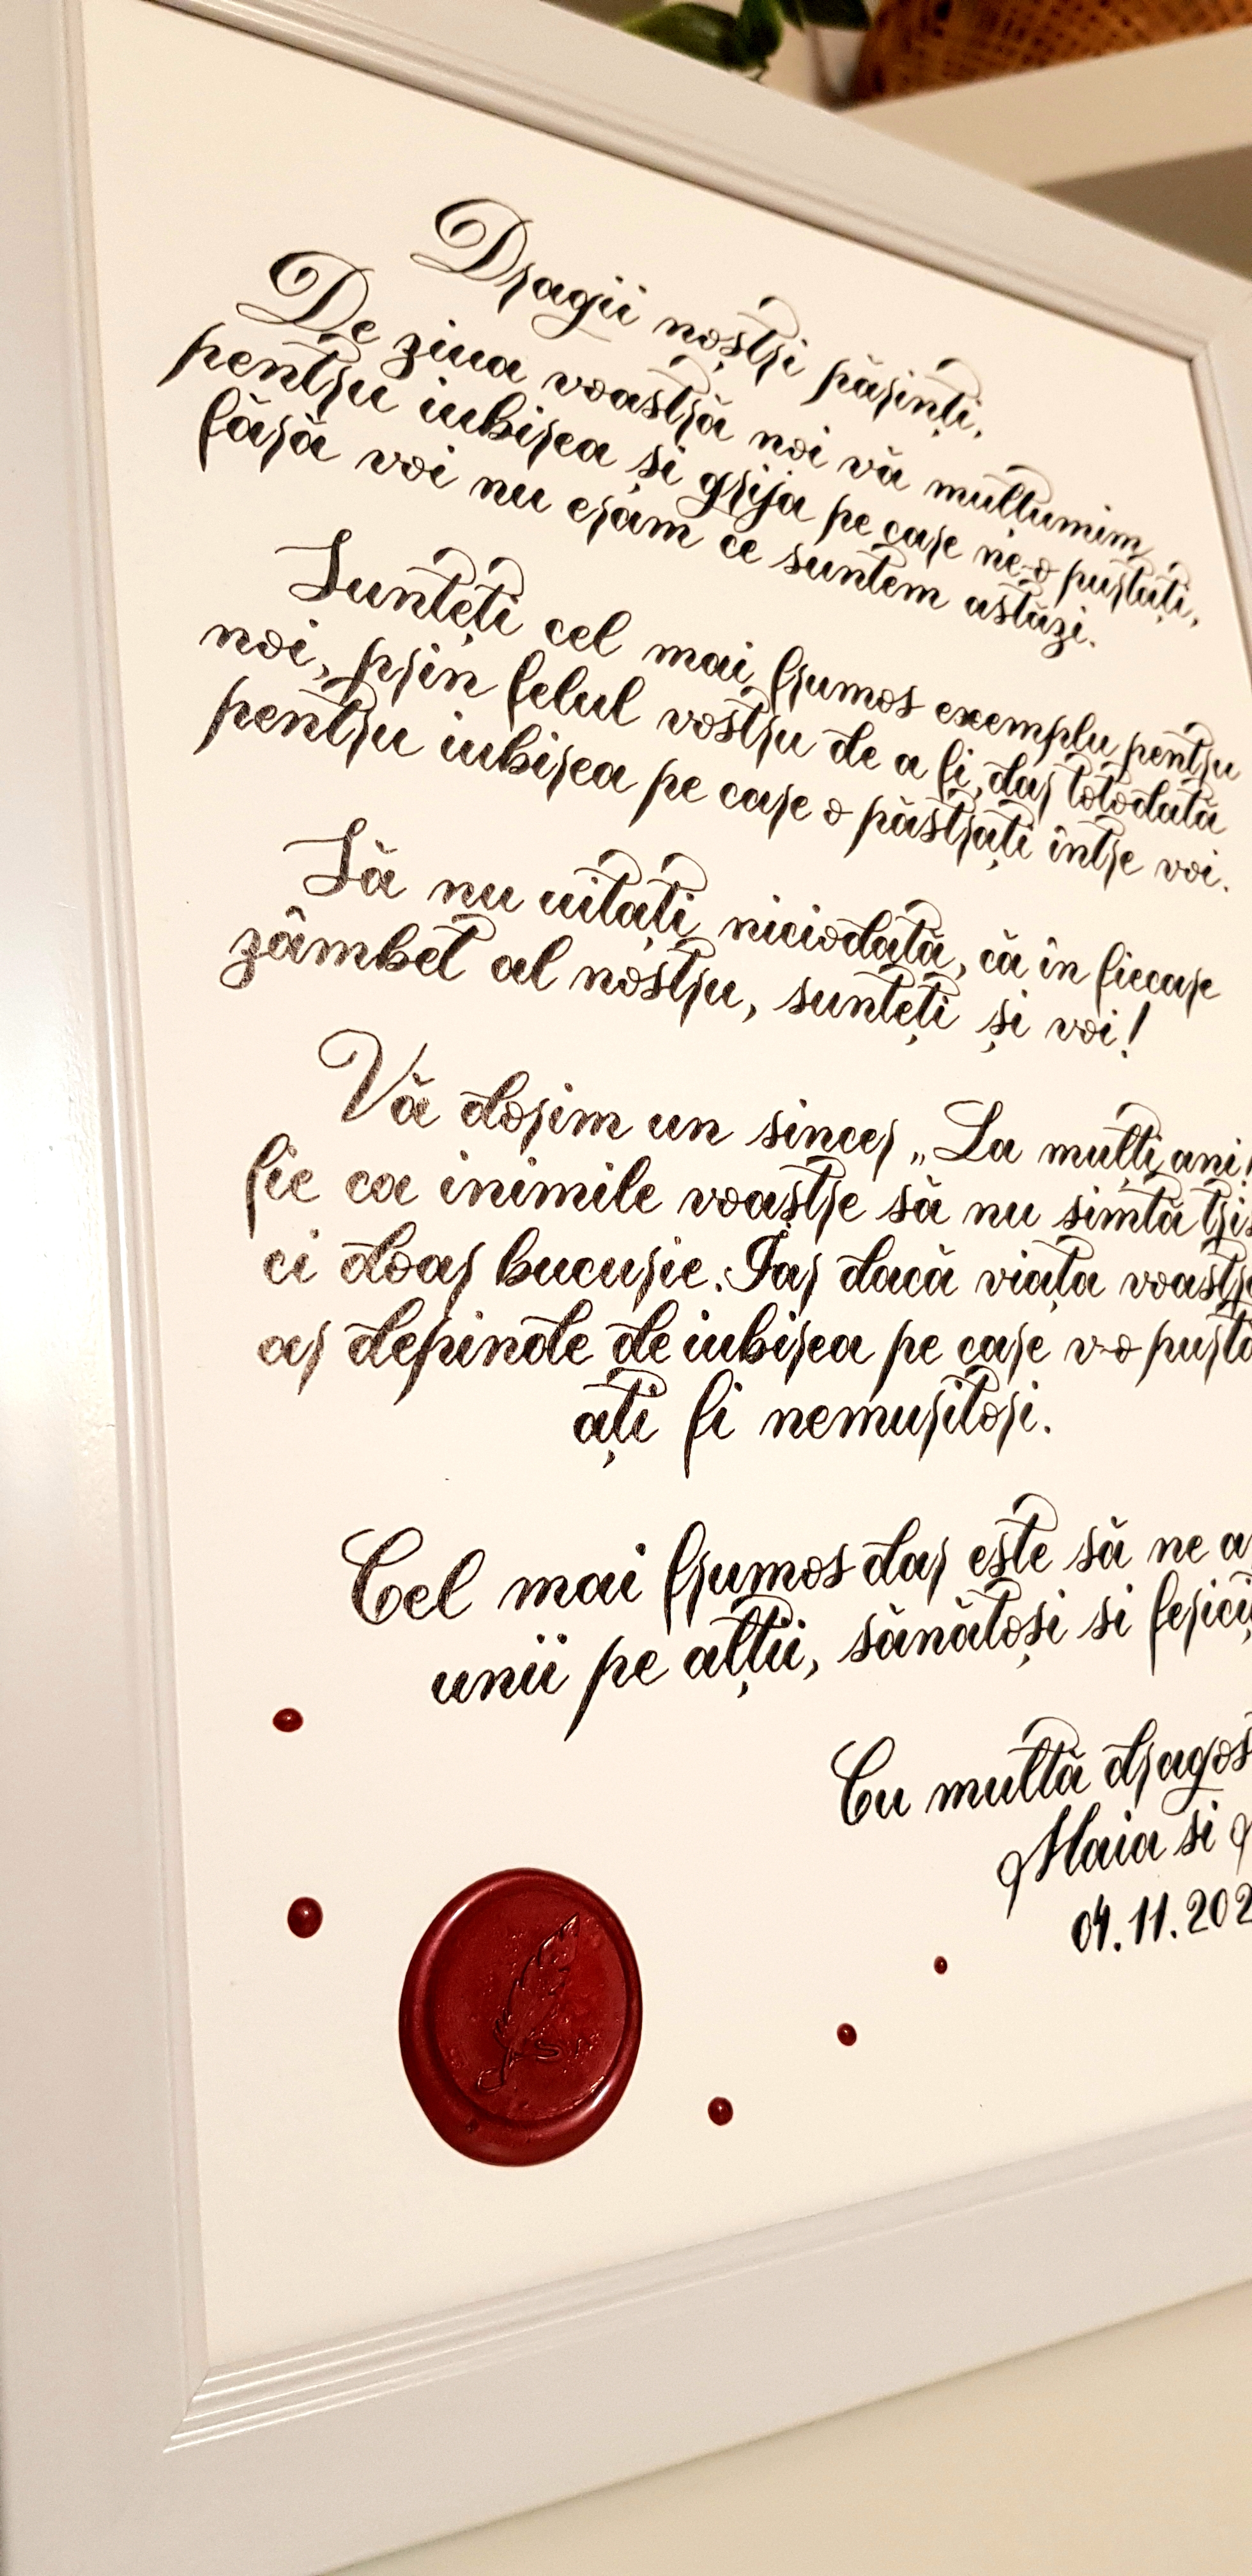 Dragii noștri părinți,
De ziua voastră noi vă mulțumim
pentru iubirea și grija pe care ne-o purtați,
fără voi nu eram ce suntem astăzi.
Sunteți cel mai frumos exemplu pentru
noi, prin felul vostru de a fi, dar totodată
pentru iubirea pe care o păstrați între voi.
Să nu uitați niciodată, că în fiecare
zâmbet al nostru, sunteți și voi!
Vă dorim un sincer „La mulți ani!
fie ca inimile voastre să nu simtă
ci doar bucurie. Iar dacă viața
ar depinde de iubirea pe care v-o
ați fi nemuritori.
Cel mai frumos dar este să ne
unii pe alții, sănătoși si
Cu multă
Maia si
04.11.202